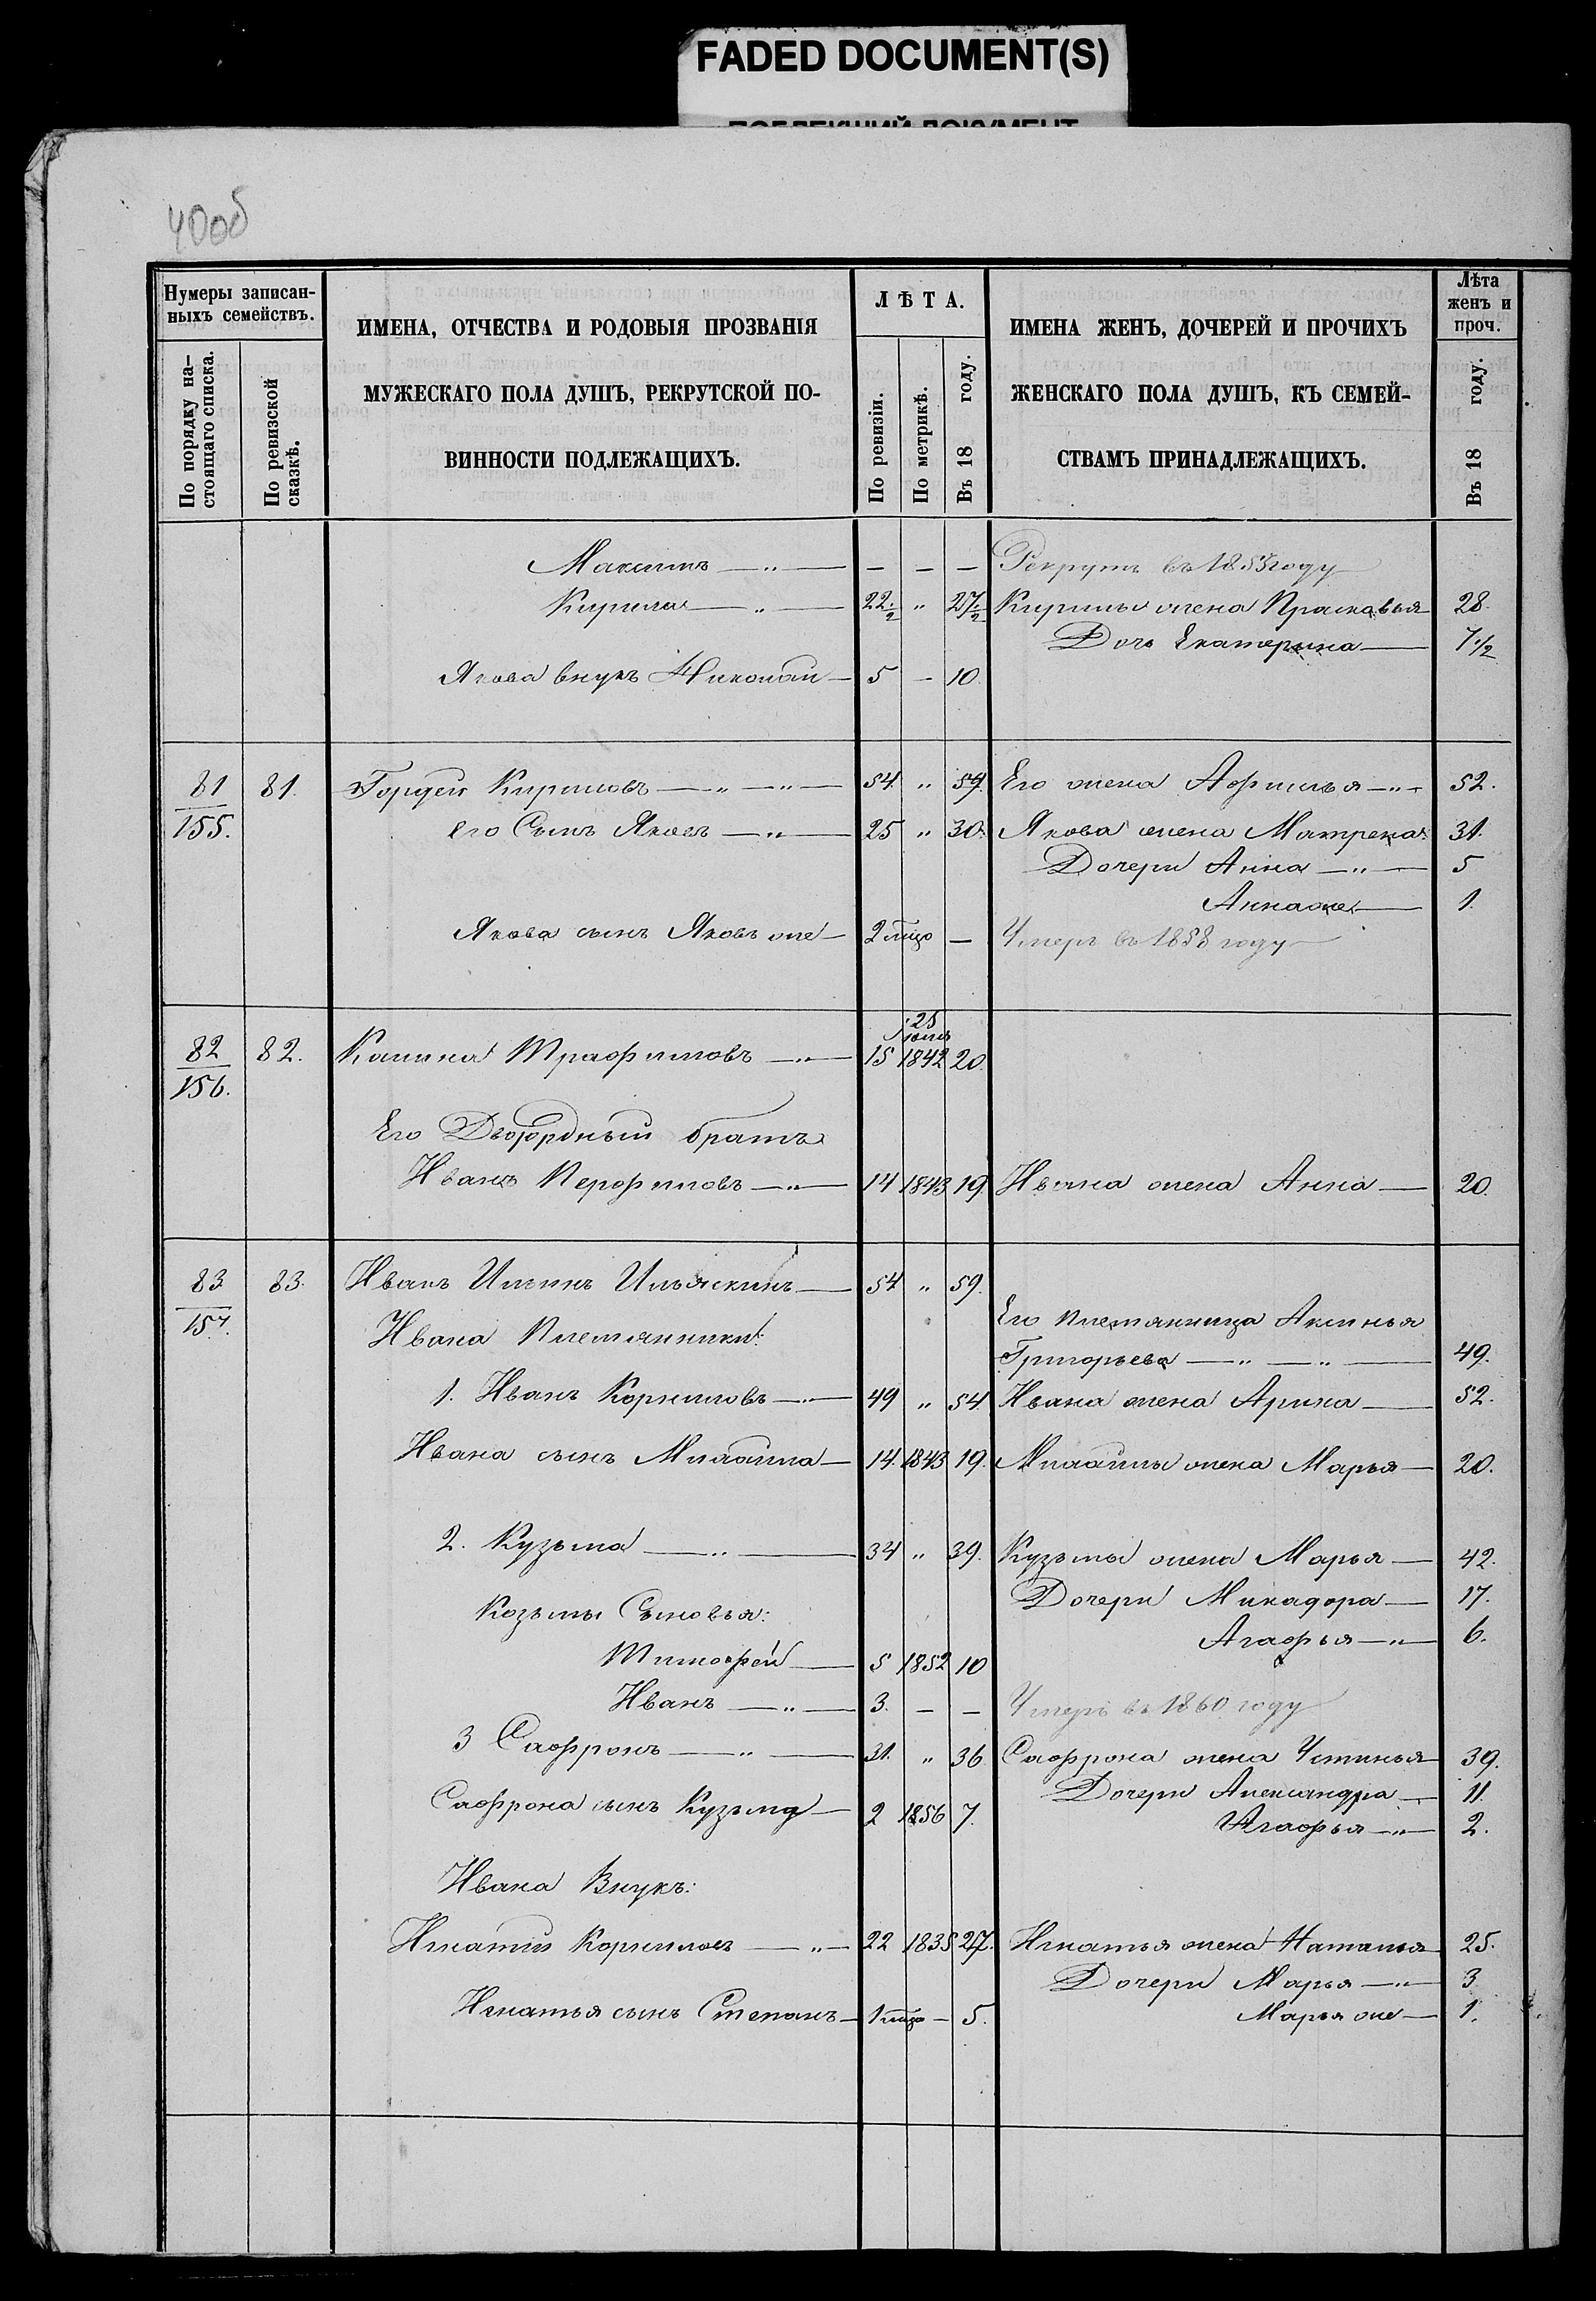 FADED DOCUMENT(S)
40об
Нумеры записан-
ныхъ семействъ.
По порядку на-
стоящаго списка.
По ревизской
сказкѣ.
ИМЕНА, ОТЧЕСТВА И РОДОВЫЯ ПРОЗВАНІЯ
МУЖЕСКАГО ПОЛА ДУШЪ, РЕКРУТСКОЙ ПО-
ВИННОСТИ ПОДЛЕЖАЩИХЪ.
ЛѢТА.
По ревизіи.
По метрикѣ.
Въ 18 году.
ИМЕНА ЖЕНЪ, ДОЧЕРЕЙ И ПРОЧИХЪ
ЖЕНСКАГО ПОЛА ДУШЪ, КЪ СЕМЕЙ-
СТВАМЪ ПРИНАДЛЕЖАЩИХЪ.
Лѣта
женъ и
проч.
Въ 18 году.
Максимъ — „ — — — — Рекрутъ въ 1855 году
Кирила — „ — 22.1/2 „ 27.1/2 Кирилы жена Прасковья 28.
Дочь Екатерина — 7 1/2
Якова внукъ Николай — 5 — 10.
81/155. 81. Гордей Кириловъ — „ — „ — 54. „ 59. Его жена Афимья — „ — 52.
Его Сынъ Яковъ — „ — 25 „ 30. Якова жена Матрена 31.
Дочери Анна — „ — 5
Анна же — 1.
Якова сынъ Яковъ же — 2 — Умеръ въ 1858 году
25
82/156. 82. Калина Трафимовъ — „ — 15 1842 20.
Его Двоюродный братъ
Иванъ Перофиловъ — „ — 14 1843 19. Ивана жена Анна — 20.
83/157. 83. Иванъ Ильинъ Ильяскинъ — 54 „ 59.
Его племянница Аксинья
Ивана Племянники:
Григорьева — „ — „ — 49.
1. Иванъ Корниловъ — „ — 49 „ 54. Ивана жена Арина — 52.
Ивана сынъ Михайла — 14. 1843 19. Михайлы жена Марья — 20.
2. Кузьма — „ — 34 „ 39. Кузьмы жена Марья — 42.
Дочери Микадора — 17.
Козьмы Сыновья:
Агафья — „ — 6.
Тимофей — 5 1852 10
Иванъ — „ — 3. — — Умеръ въ 1860 году
3 Сафронъ — „ — 31. „ 36. Сафрона жена Устинья 39.
Дочери Александра — 11.
Сафрона сынъ Кузьма — 2 1856 7.
Агафья — „ — 2.
Ивана Внукъ:
Игнатій Корниловъ — „ — 22 1835 27. Игнатья жена Наталья 25.
Дочери Марья — „ — 3
Игнатья сынъ Степанъ — 1 — 5.
Марья же — 1.